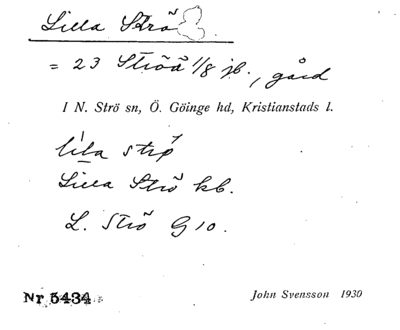 Lilla Strö
= 23 Ströä 1/8 jb., gård
I N. Strö sn, Ö. Göinge hd, Kristianstads l.
lila strø
Lilla Strö kb.
L. Strö G 10.
Nr 5434
John Svensson 1930